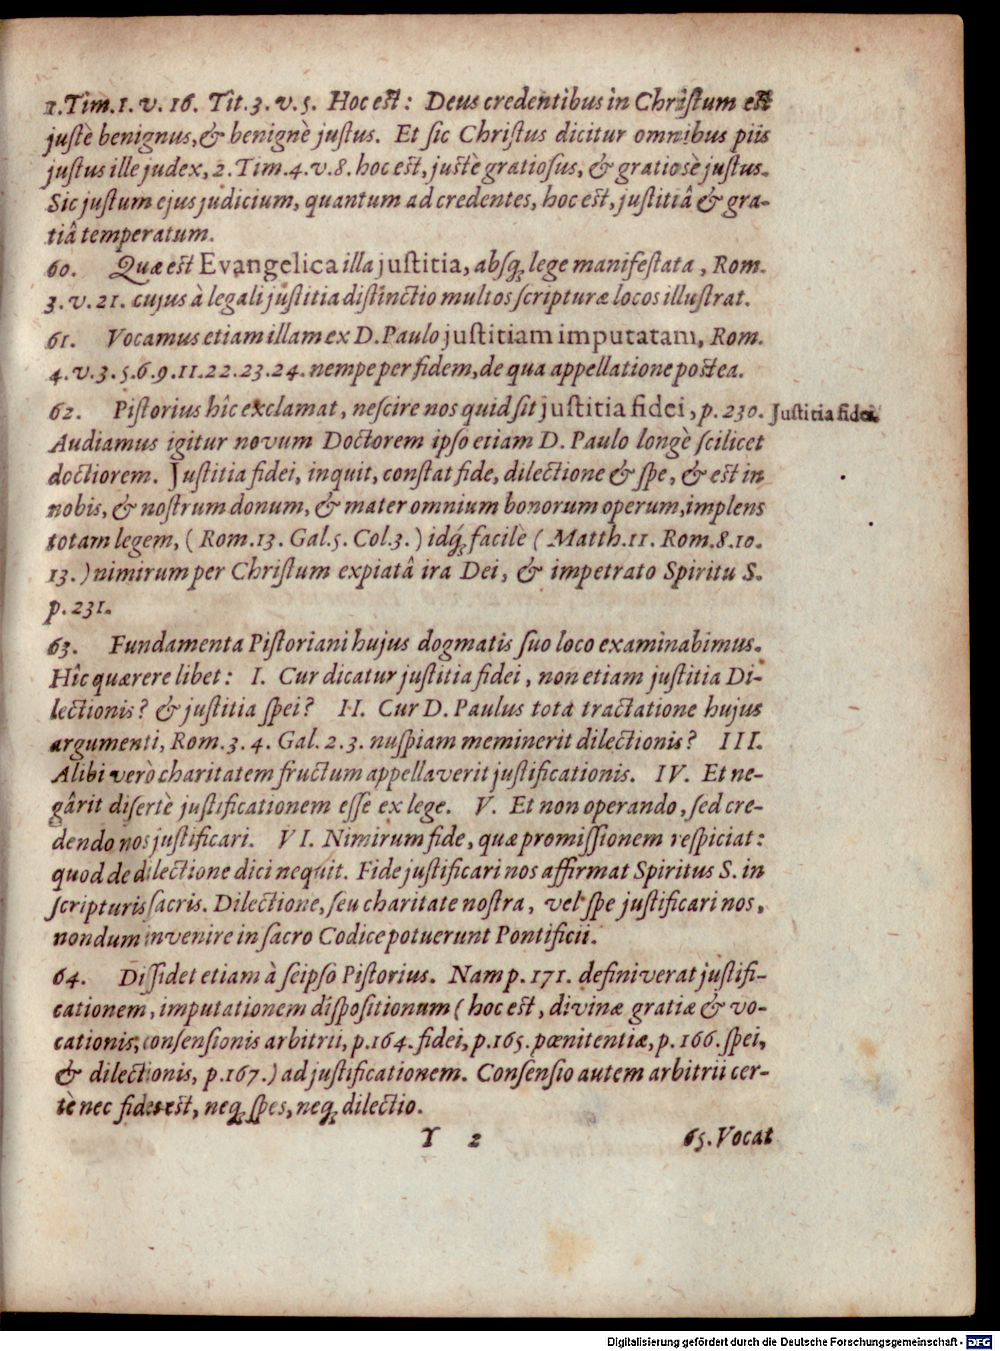 1. Tim. 1. v. 16. Tit. 3. v. 5. Hoc est: Deus credentibus in Christum est
justè benignus, & benignè justus. Et sic Christus dicitur omnibus piis
justus ille judex, 2. Tim. 4. v. 8. hoc est, justè gratiosus, & gratiosè justus.
Sic justum ejus judicium, quantum ad credentes, hoc est, justitiâ & gra-
tiâ temperatum.
60. Quæ est Evangelica illa justitia, absq; lege manifestata, Rom.
3. v. 21. cujus à legali justitia distinctio multos scripturæ locos illustrat.
61. Vocamus etiam illam ex D. Paulo justitiam imputatam, Rom.
4. v. 3. 5. 6. 9. 11. 22. 23. 24. nempe per fidem, de qua appellatione postea.
62. Pistorius hîc exclamat, nescire nos quid sit justitia fidei, p. 230. Justitia fidei.
Audiamus igitur novum Doctorem ipso etiam D. Paulo longè scilicet
doctiorem. Justitia fidei, inquit, constat fide, dilectione & spe, & est in
nobis, & nostrum donum, & mater omnium bonorum operum, implens
totam legem, (Rom. 13. Gal. 5. Col. 3.) idq́; facilè (Matth. 11. Rom. 8. 10.
13.) nimirum per Christum expiatâ ira Dei, & impetrato Spiritu S.
p. 231.
63. Fundamenta Pistoriani hujus dogmatis suo loco examinabimus.
Hîc quærere libet: I. Cur dicatur justitia fidei, non etiam justitia Di-
lectionis? & justitia spei? II. Cur D. Paulus tota tractatione hujus
argumenti, Rom. 3. 4. Gal. 2. 3. nuspiam meminerit dilectionis? III.
Alibi verò charitatem fructum appellaverit justificationis. IV. Et ne-
gârit disertè justificationem esse ex lege. V. Et non operando, sed cre-
dendo nos justificari. VI. Nimirum fide, quæ promissionem respiciat:
quod de dilectione dici nequit. Fide justificari nos affirmat Spiritus S. in
scripturis sacris. Dilectione, seu charitate nostra, vel spe justificari nos,
nondum invenire in sacro Codice potuerunt Pontificii.
64. Dissidet etiam à seipso Pistorius. Nam p. 171. definiverat justifi-
cationem, imputationem dispositionum (hoc est, divinæ gratiæ & vo-
cationis, consensionis arbitrii, p. 164. fidei, p. 165. pœnitentiæ, p. 166. spei,
& dilectionis, p. 167.) ad justificationem. Consensio autem arbitrii cer-
tè nec fides est, neq; spes, neq; dilectio.
Y 2 65. Vocat
Digitalisierung gefördert durch die Deutsche Forschungsgemeinschaft - DFG